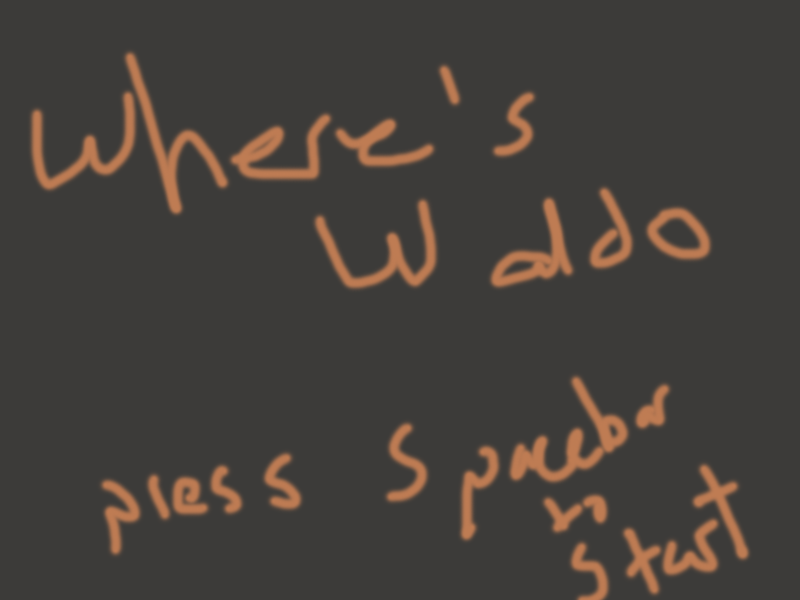 Where's
Waldo
press Spacebar
to
start